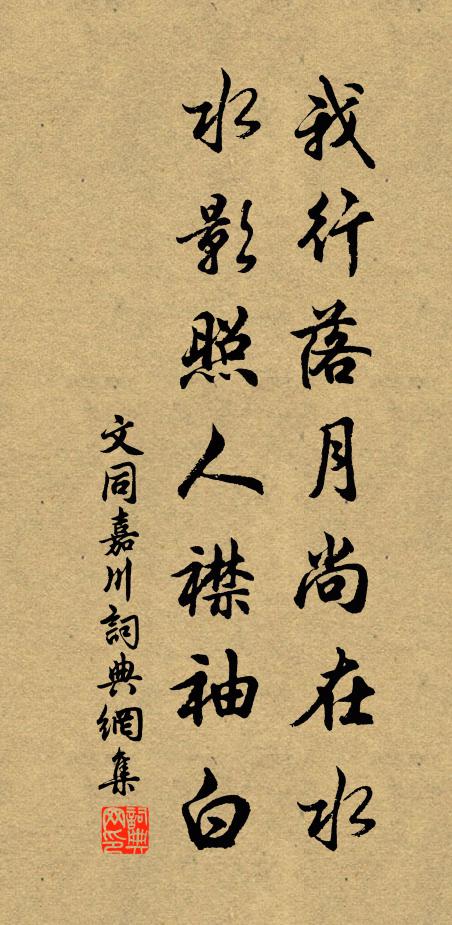 我行落月尚在水
水影照人襟袖白
文同嘉川詞典網集
詞典網印